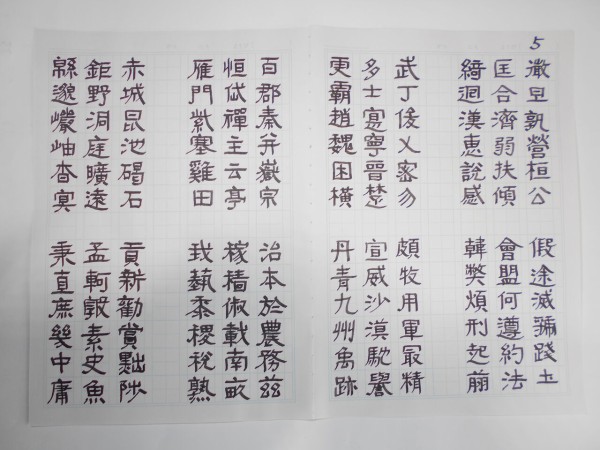 5
微旦孰營桓公
匡合濟弱扶傾
綺迴漢惠說感
武丁俊乂密勿
多士寔寧晉楚
更霸趙魏困橫
百郡秦并嶽宗
恒岱禪主云亭
雁門紫塞雞田
赤城昆池碣石
鉅野洞庭曠遠
緜邈巖岫杳冥
假途滅虢踐土
會盟何遵約法
韓弊煩刑起翦
頗牧用軍最精
宣威沙漠馳譽
丹青九州禹跡
治本於農務茲
稼穡俶載南畝
我藝黍稷稅熟
貢新勸賞黜陟
孟軻敦素史魚
秉直庶幾中庸